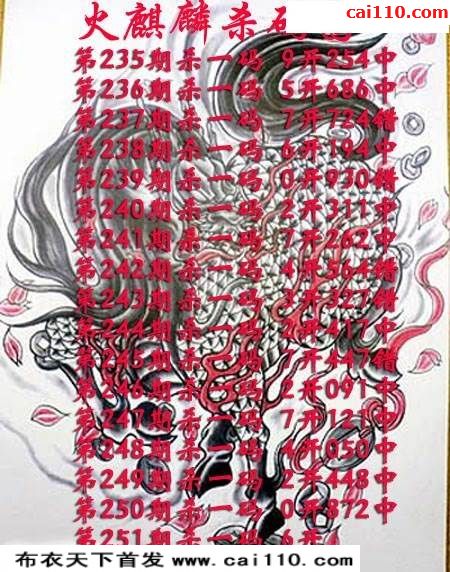 cai110.com
火麒麟杀
第235期杀一码 9开254中
第236期杀一码 5开686中
第237期杀一码 7开724错
第238期杀一码 6开194中
第239期杀一码 0开930错
第240期杀一码 2开311中
第241期杀一码 7开262中
第242期杀一码 4开564错
第243期杀一码 3开327错
第244期杀一码 2开417中
第245期杀一码 开447错
第246期杀一码 2开091中
第247期杀一码 7开121中
第248期杀一码 4开050中
第249期杀一码 2开448中
第250期杀一码 0开872中
第251期杀一码 6开
布衣天下首发 www.cai110.com